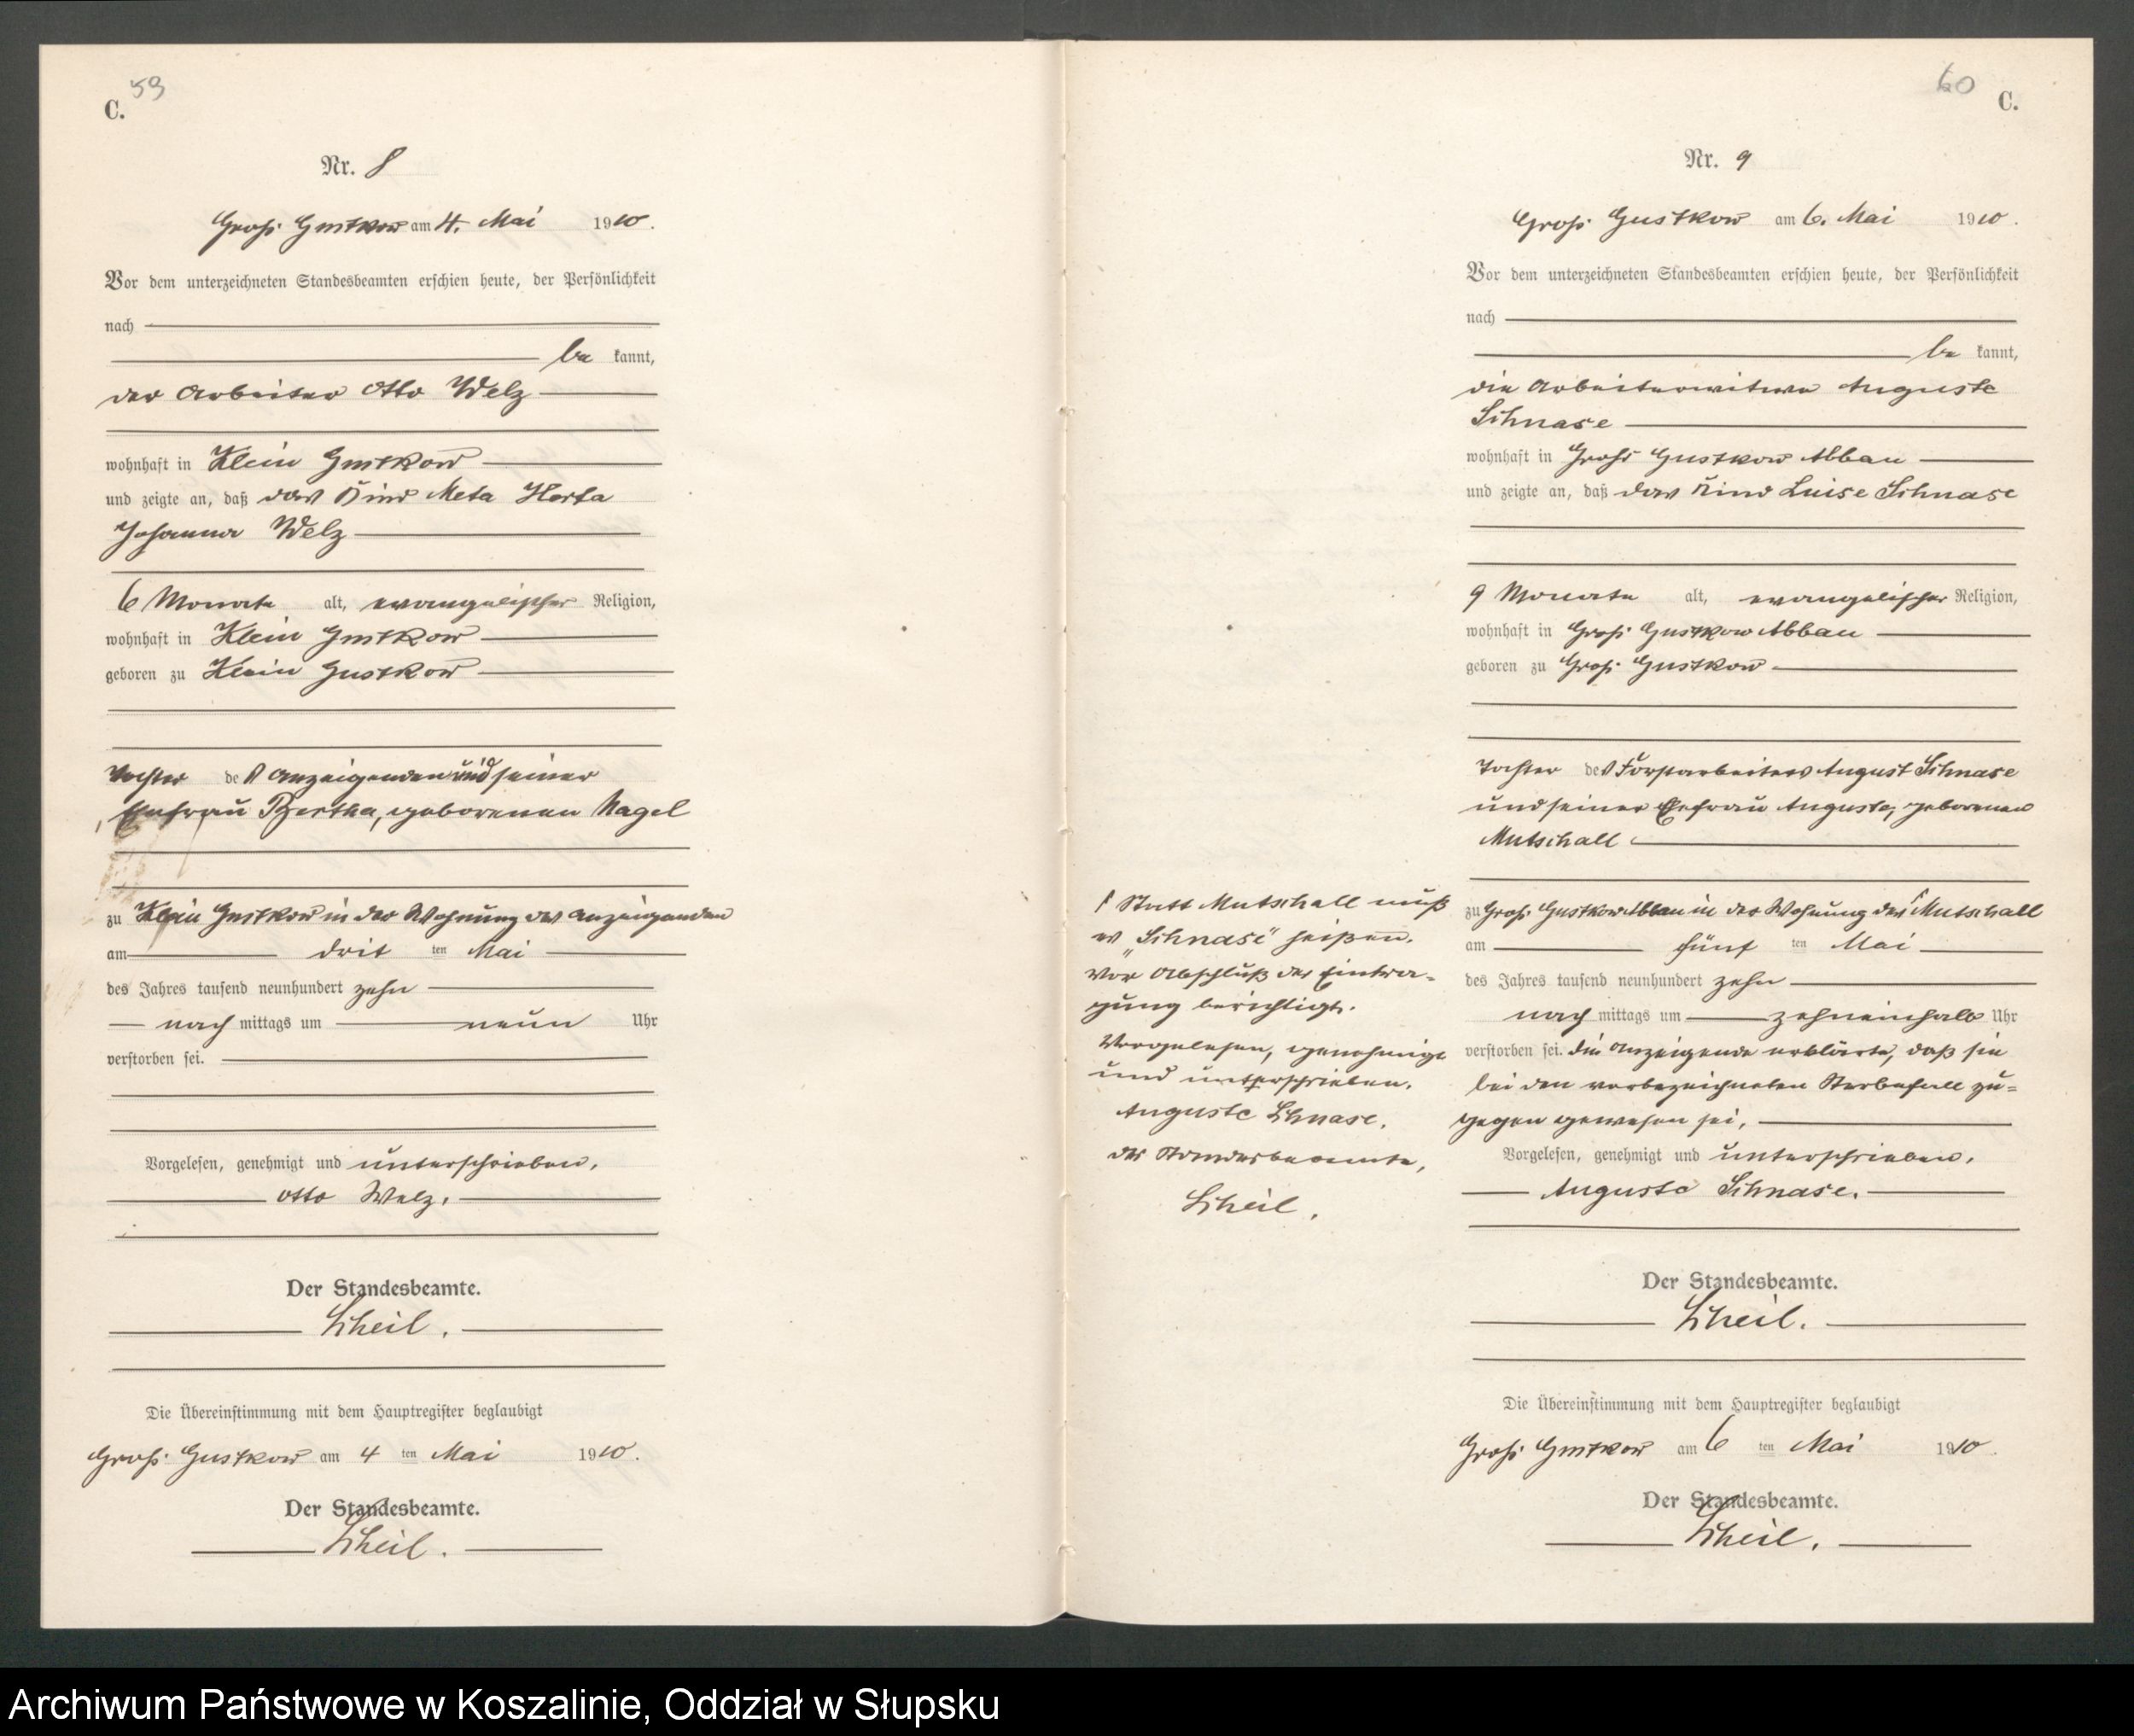 59
C.
Nr. 8
Groß Gustkow am 4. Mai 1910.
Vor dem unterzeichneten Standesbeamten erschien heute, der Persönlichkeit
nach
be kannt,
der Arbeiter Otto Welz
wohnhaft in Klein Gustkow
und zeigte an, daß das Kind Meta Herta
Johanna Welz
6 Monate alt, evangelischer Religion,
wohnhaft in Klein Gustkow
geboren zu Klein Gustkow
Tochter des Anzeigenden und seiner
Ehefrau Bertha, geborenen Nagel
zu Klein Gustkow in der Wohnung des Anzeigenden
am drit ten Mai
des Jahres tausend neunhundert zehn
nach mittags um neun Uhr
verstorben sei.
Vorgelesen, genehmigt und unterschrieben.
Otto Welz.
Der Standesbeamte.
Scheil.
Die Übereinstimmung mit dem Hauptregister beglaubigt
Groß Gustkow am 4 ten Mai 1910.
Der Standesbeamte.
Scheil.
60
C.
Nr. 9
Groß Gustkow am 6. Mai 1910.
Vor dem unterzeichneten Standesbeamten erschien heute, der Persönlichkeit
nach
be kannt,
die Arbeiterwitwe Auguste
Schnase
wohnhaft in Groß Gustkow Abbau
und zeigte an, daß das Kind Luise Schnase
9 Monate alt, evangelischer Religion,
wohnhaft in Groß Gustkow Abbau
geboren zu Groß Gustkow
Tochter des Forstarbeiters August Schnase
und seiner Ehefrau Auguste, geborenen
Mutschall
zu Groß Gustkow Abbau in der Wohnung des Mutschall
am fünf ten Mai
des Jahres tausend neunhundert zehn
nach mittags um zehneinhalb Uhr
verstorben sei. Die Anzeigende erklärte, daß sie
bei den vorbezeichneten Sterbefall zu=
gegen gewesen sei.
Vorgelesen, genehmigt und unterschrieben.
Auguste Schnase.
Der Standesbeamte.
Scheil.
Die Übereinstimmung mit dem Hauptregister beglaubigt
Groß Gustkow am 6 ten Mai 1910.
Der Standesbeamte.
Scheil.
Statt Mutschall muß
es „Schnase" heißen.
Vor Abschluß der Eintra=
gung berichtigt.
Vorgelesen, genehmigt
und unterschrieben.
Auguste Schnase.
Der Standesbeamte,
Scheil.
Archiwum Państwowe w Koszalinie, Oddział w Słupsku